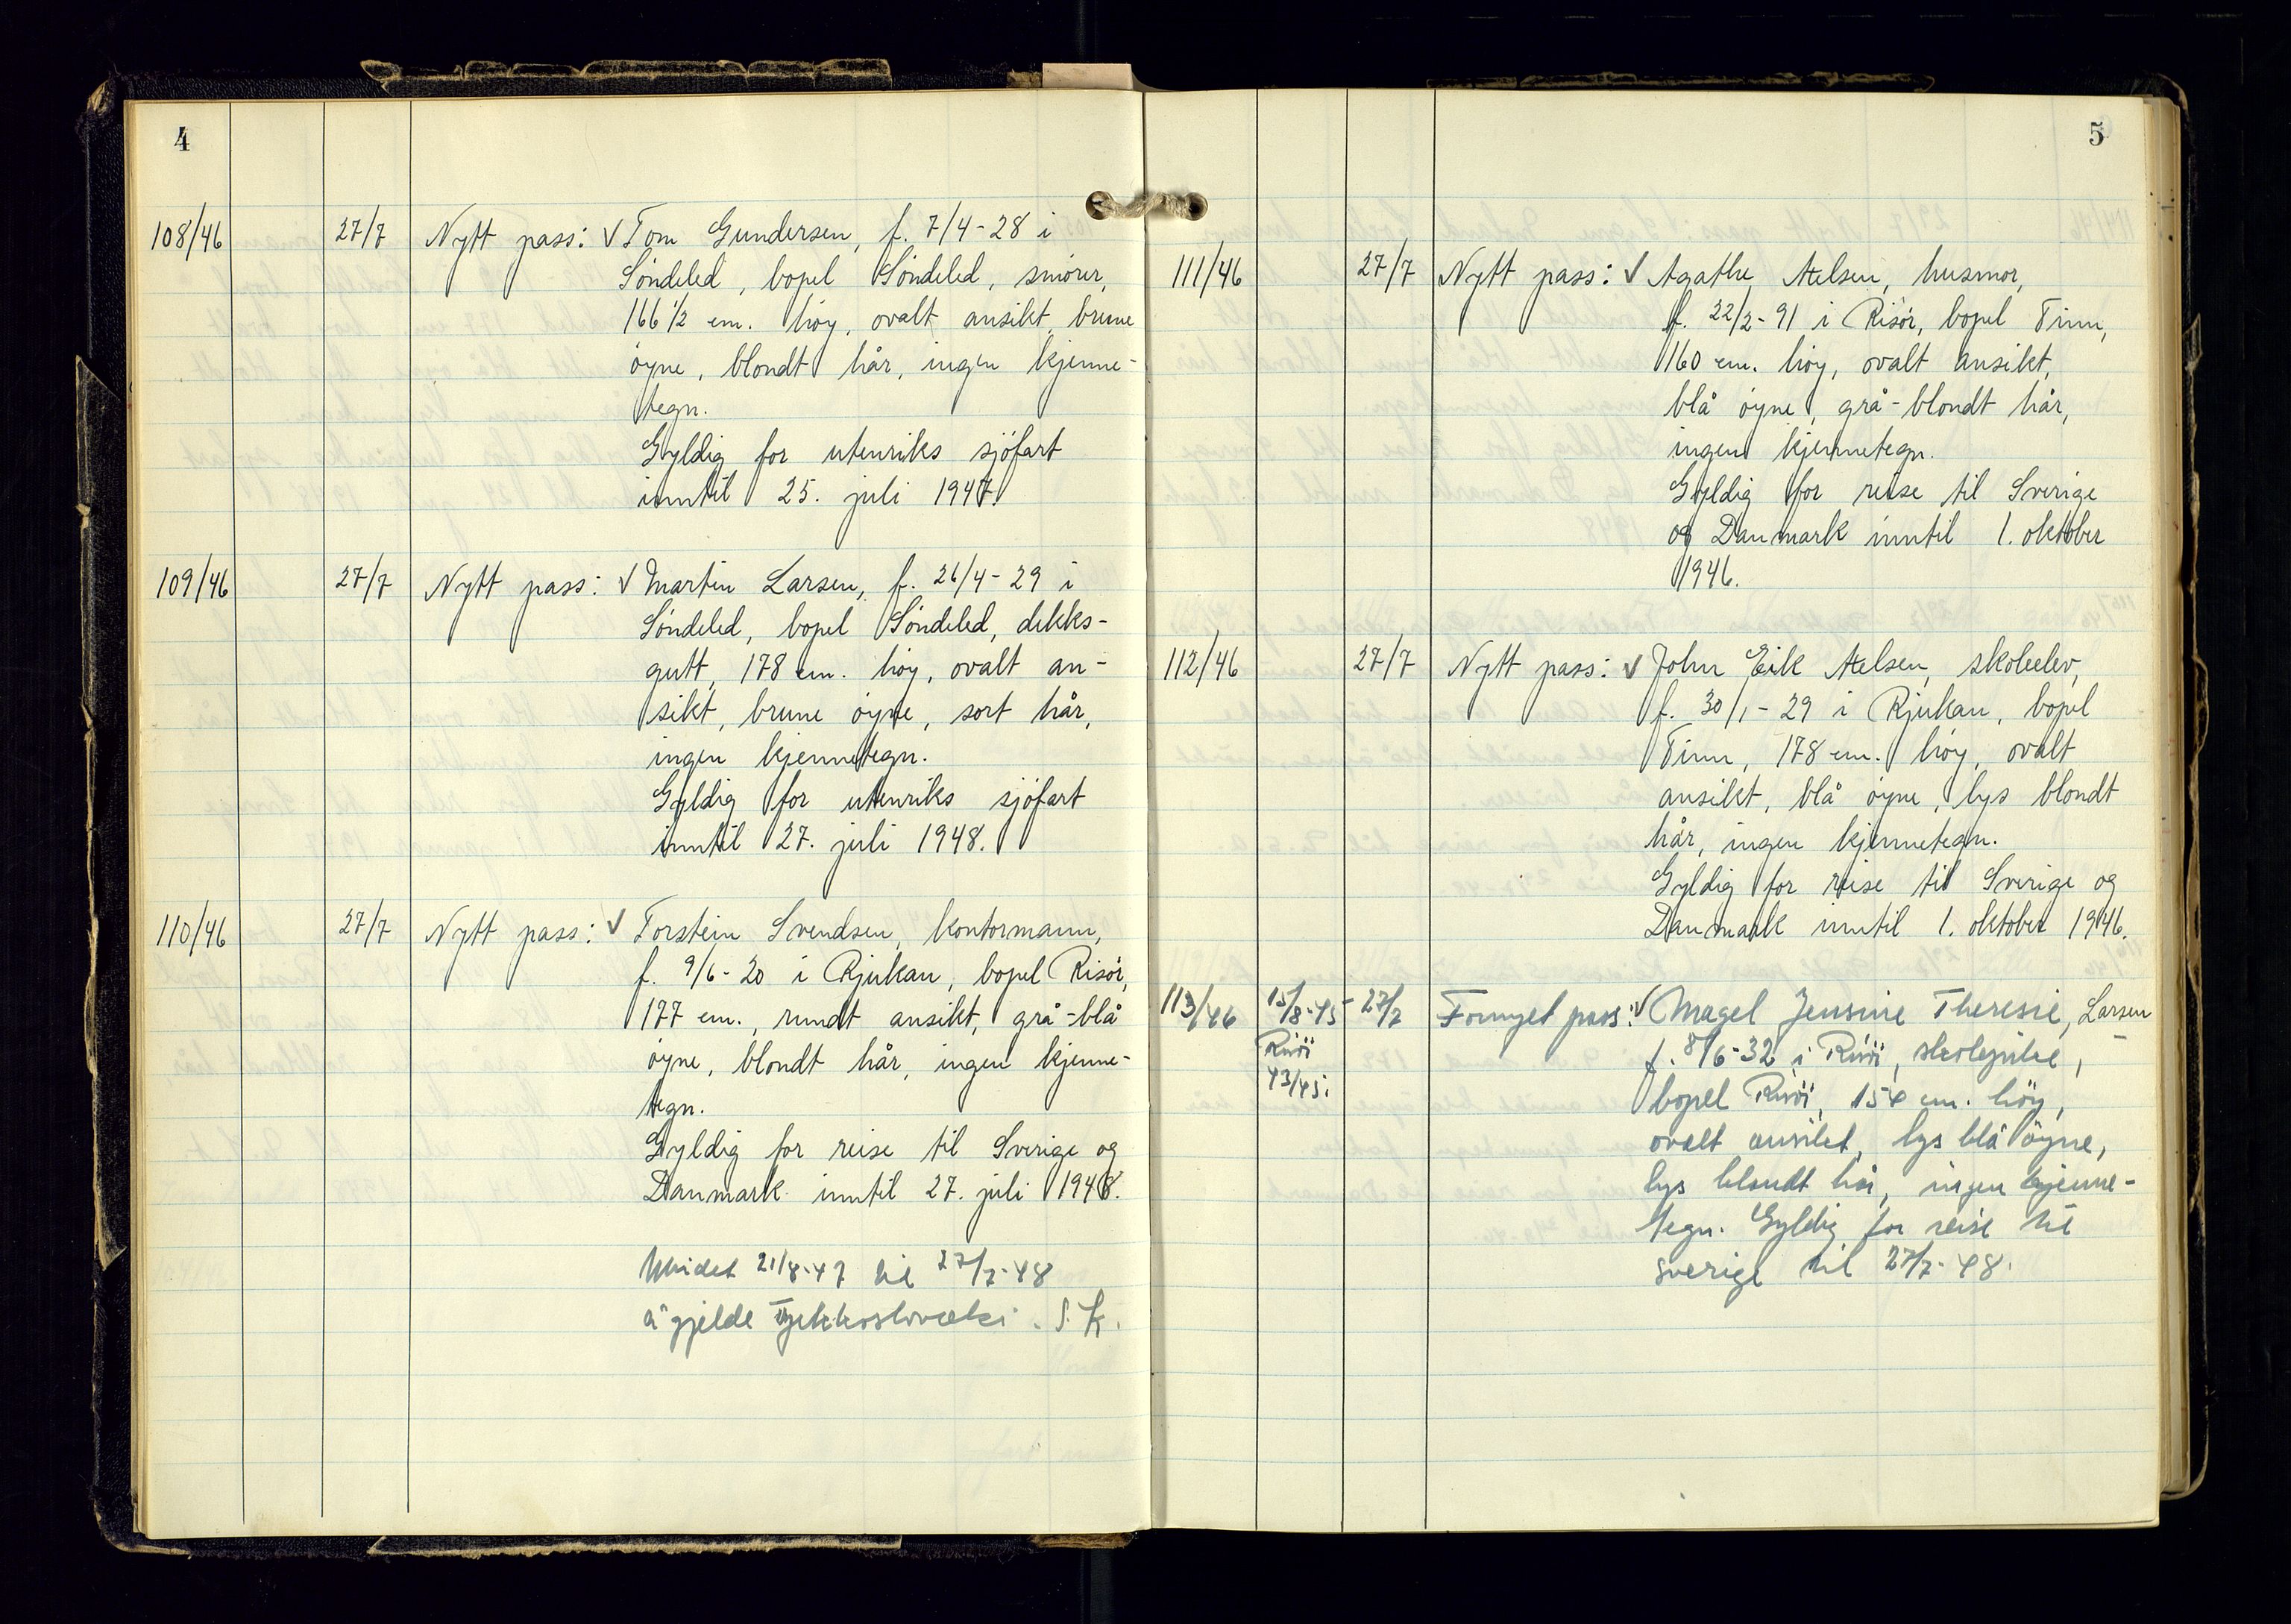 4
108/46 27/7 Nytt pass: √ Tom Gundersen, f. 7/4-28 i
Söndeled, bopel Söndeled, smörer,
166 1/2 cm. höy, ovalt ansikt, brune
öyne, blondt hår, ingen kjenne-
tegn.
Gyldig for utenriks sjöfart
inntil 25. juli 1947.
109/46 27/7 Nytt pass: √ Martin Larsen, f. 26/4-29 i
Söndeled, bopel Söndeled, dekks-
gutt, 178 cm. höy, ovalt an-
sikt, brune öyne, sort hår,
ingen kjennetegn.
Gyldig for utenriks sjöfart
inntil 27. juli 1948.
110/46 27/7 Nytt pass: √ Torstein Svendsen, kontormann,
f. 9/6-20 i Rjukan, bopel Risör,
177 cm., rundt ansikt, grå-blå
öyne, blondt hår, ingen kjenne-
tegn.
Gyldig for reise til Sverige og
Danmark inntil 27. juli 1948.
Utvidet 21/8-47 til 27/7-48
å gjelde Tjekkoslovaki. S.K.
5
111/46 27/7 Nytt pass: √ Agathe Axelsen, husmor,
f. 22/2-91 i Risör, bopel Tinn,
160 cm. höy, ovalt ansikt,
blå öyne, grå-blondt hår,
ingen kjennetegn.
Gyldig for reise til Sverige
og Danmark inntil 1. oktober
1946.
112/46 27/7 Nytt pass: √ John Eik Axelsen, skoleelev,
f. 30/1-29 i Rjukan, bopel
Tinn, 178 cm. höy, ovalt
ansikt, blå öyne, lys blondt
hår, ingen kjennetegn.
Gyldig for reise til Sverige og
Danmark inntil 1. oktober 1946.
113/46 15/8-45 27/7 Fornyet pass: √ Magel Jensine Theresie, Larsen
Risör f. 8/6-32 i Risör, skolepike,
43/45. bopel Risör, 154 cm. höy,
ovalt ansikt, lys blå öyne,
lys blondt hår, ingen kjenne-
tegn. Gyldig for reise til
Sverige til 27/7-48.